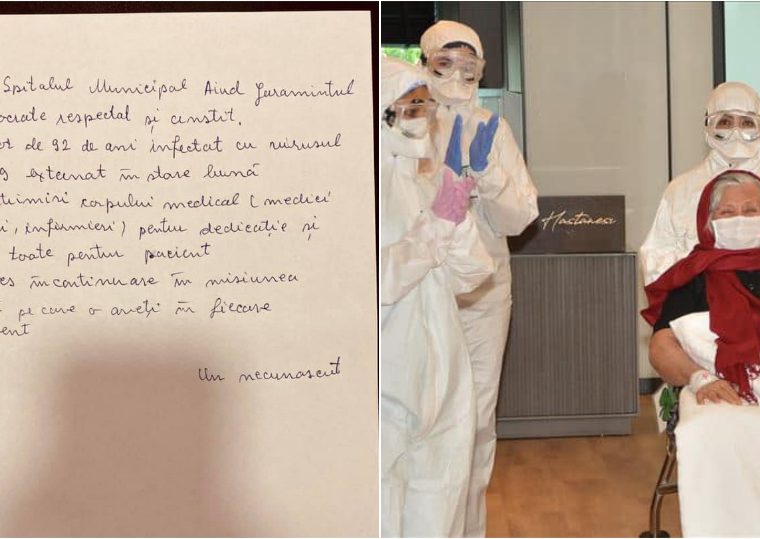 Spitalul Municipal Aiud Juramintul
ocrate respectat și cinstit.
de 92 de ani infectat cu virusul
9 externat în stare bună
corpului medical (medici
i, infirmieri) pentru dedicație și
toate pentru pacient
es încontinuare în misiunea
pe care o aveți în fiecare
ent
Un necunoscut
Hastanesi